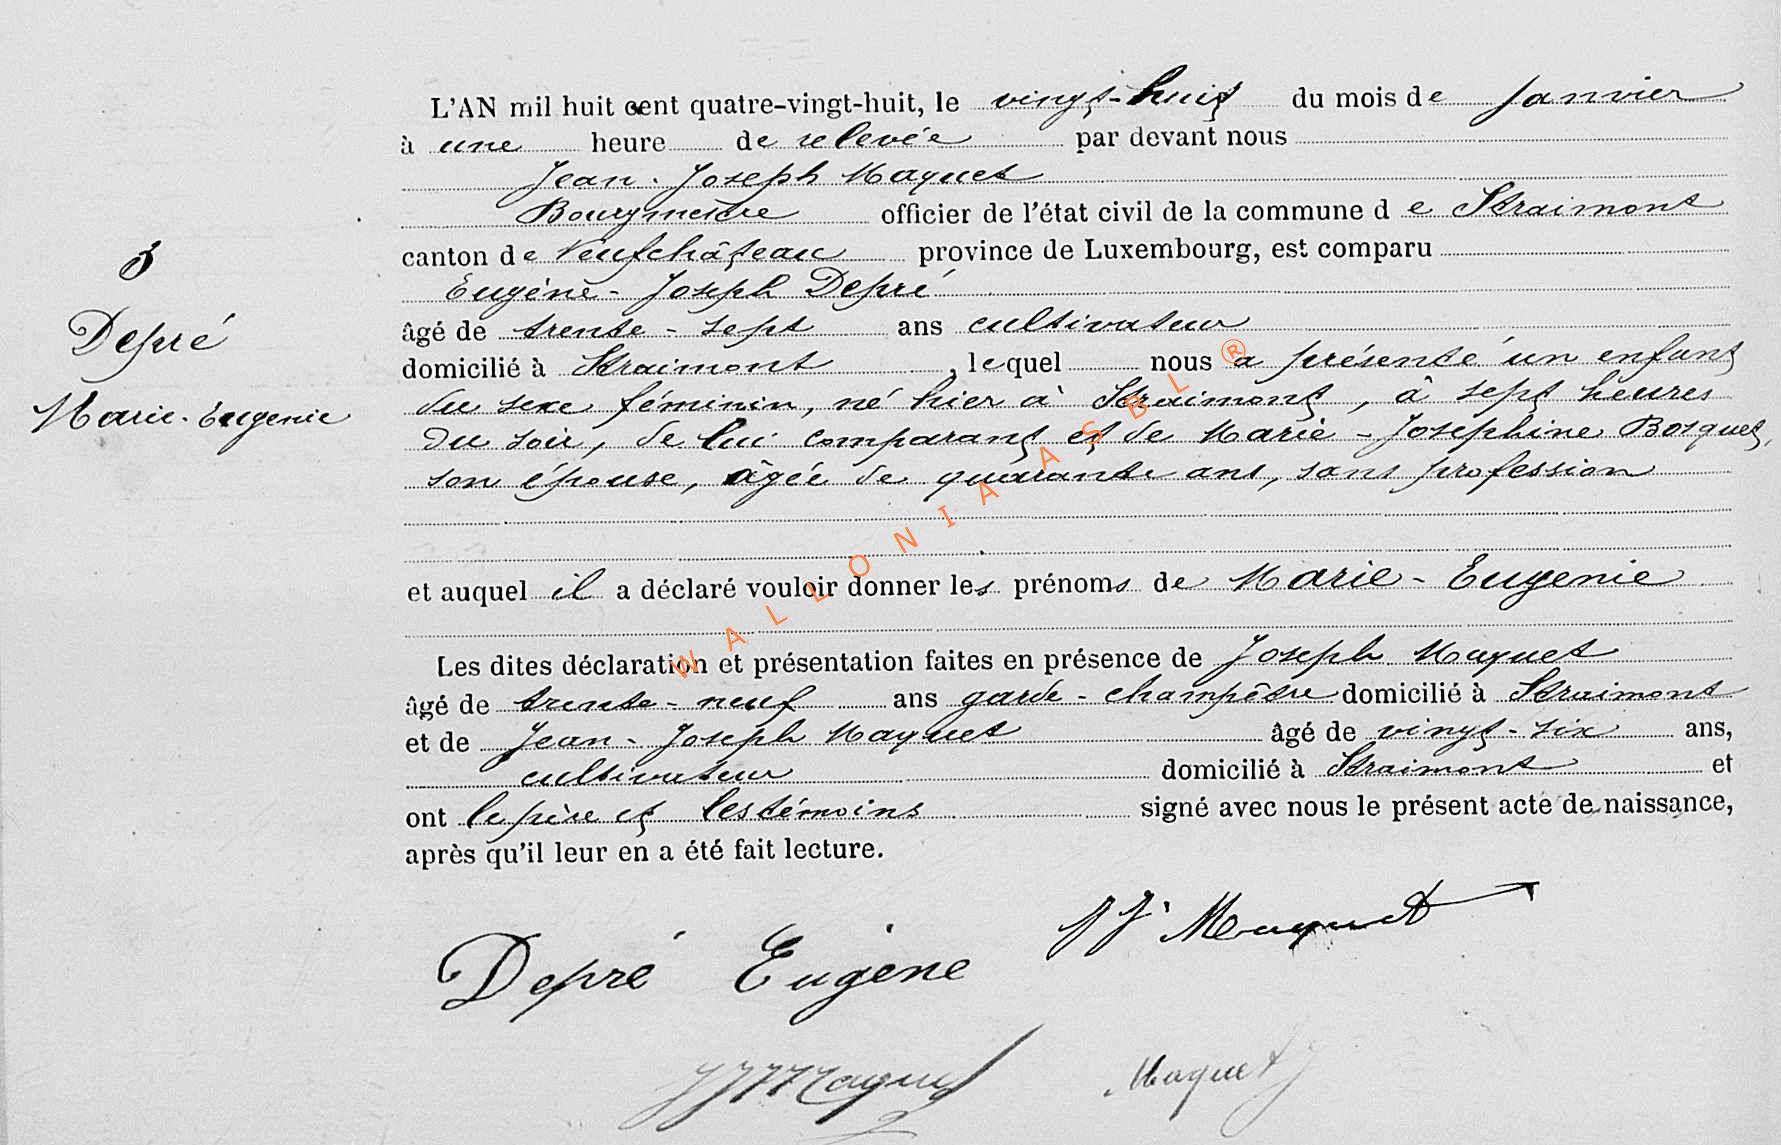 L'AN mil huit cent quatre-vingt-huit, le vingt-huit du mois de Janvier
à une heure de relevée par devant nous
Jean-Joseph Maquet
Bourgmestre officier de l'état civil de la commune de Straimont
canton de Neufchâteau province de Luxembourg, est comparu
Eugène-Joseph Depré
âgé de trente-sept ans cultivateur
domicilié à Straimont, lequel nous a présenté un enfant
du sexe féminin, né hier à Straimont, à sept heures
du soir, de lui comparant et de Marie-Josephine Bosquet,
son épouse, âgée de quarante ans, sans profession
et auquel il a déclaré vouloir donner les prénoms de Marie-Eugenie
Les dites déclaration et présentation faites en présence de Joseph Maquet
âgé de trente-neuf ans garde-champêtre domicilié à Straimont
et de Jean-Joseph Maquet âgé de vingt-six ans,
cultivateur domicilié à Straimont et
ont le père et les témoins signé avec nous le présent acte de naissance,
après qu'il leur en a été fait lecture.
3
Depré
Marie-Eugenie
WALLONIA ASBL ®
Depré Eugène
JJ Maquet
JJ Maquet
Maquet J